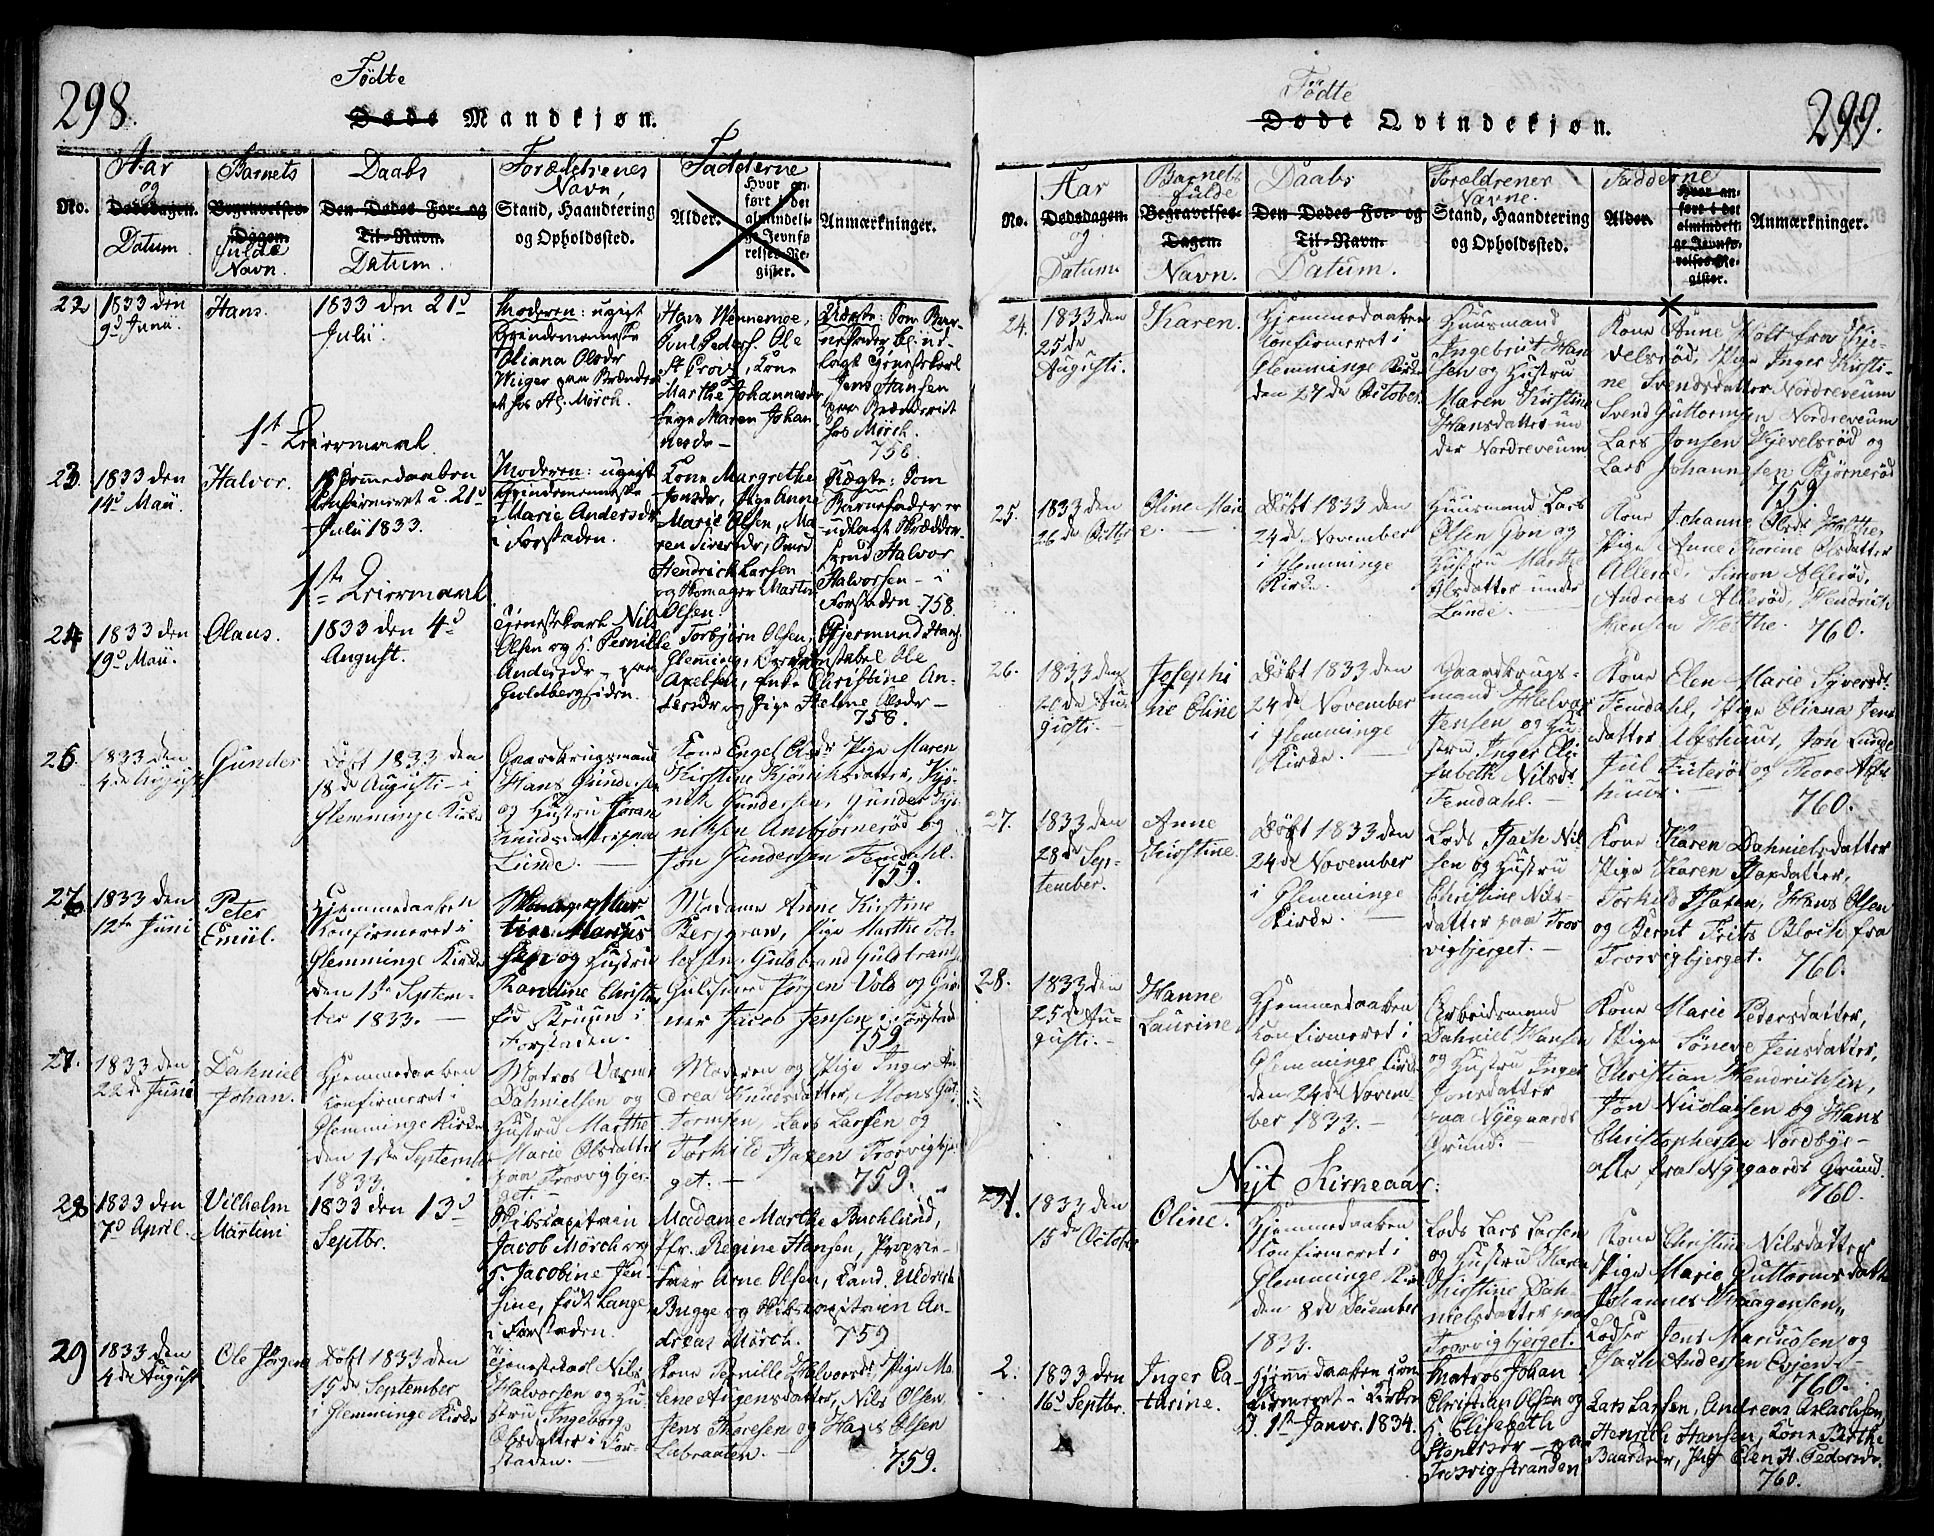 298.
Födte
Døde Mandkjøn.
No.
Aar
og
Dødsdagen.
Datum.
Barnets
Begravelses-
Dagen.
fulde
Navn.
Daabs
Den Dødes For- og
Til-Navn.
Datum.
Forældrenes
Navn,
Stand, Haandtering
og Opholdssted.
Fadderne
Alder.
Hvor an-
ført i det
almindeli-
ge Jevnfø-
relses-Re-
gister.
Anmærkninger.
22
1833 den
9d Junii.
Hans.
1833 den 21d
Julii
Moderen: ugigt
Qvindemenneske
Oliana Olsdr
hos Hj. Mörch.
Hans Wennemoe,
Poul Peders. Ole
Marthe Johannesdr
Pige Maren Johan
nesdr —
Uægte: Som Bar-
nefader bl: ud-
lagt Tjenestekarl
Jens Hansen
hos Mörch.
758
1st Leiermaal.
23.
1833 den
14d Maii.
Halvor.
Hjemmedaaben
Confirmeret d. 21d
Julii 1833.
Moderen: ugigt
Qvindemenneske
Marie Andersdr
i Forstaden.
Kone Margrethe
Jensdr, Pige Anne
Marie Olsen, Ma-
ren Siversdr, Smed
Hendrich Larsen
og Skomager Martin
Olsen.
Uægte: Som
Barnefader er
udlagt Skrædder-
svend Halvor
Halvorsen — i
Forstaden 758.
1ste Leiermaal
24
1833 den
19d Maii.
Olaus.
1833 den 4d
August.
Tjenestekarl Nils
Olsen og H. Pernille
Andersdr — paa
Guldbergsiden.
Torbjörn Olsen, Gjermund Hans.
Axelsen, Enke Christine An-
dersdr og Pige Helene Olsdr —
758.
26
1833 den
4de Augusti
Gunder
Döbt 1833 den
18de Augusti — i
Glemminge Kirke
Gaardbrugsmand
Hans Gundersen
og Hustru Joran
Knudsdatter paa
Lunde. —
Kone Engel Olsdr Pige Maren
Kirstine Kjönichsdatter, Kjö-
nich Gundersen, Gunder Kjö-
nichsen Ambjörneröd og
Jon Gundersen Femdahl.
759.
27
1833 den
12te Junii
Peter
Emiil.
Hjemmedaaben
Konfirmeret i
Glemminge Kirke
den 15de Septem-
ber 1833. —
og Hustru
Randine Christine
föd Bruun i
Forstaden.
Madame Anne Kirstine
Berggrav, Pige Marthe Tol-
lefsen, Gulbrand Guldbrands
Guldsmed Jörgen Vold og Gar-
ver Jacob Jensen i Forstad
759
27.
1833 den
22de Junii
Dahniel
Johan.
Hjemmedaaben
Konfirmeret i
Glemminge Kirke
den 15de September
1833.
Matros Rasmus
Dahnielsen og
Hustru Marthe
Marie Olsdatter
paa Trosvigbjer-
get. —
Moderen og Pige Inger An-
drea Knudsdatter, Mons Gut-
tormsen, Lars Larsen og
Torkild Isaxen Trosvigbjer-
get. —
759.
28
1833 den
7d April.
Vilhelm
Martini
1833 den 13d
Septbr.
Skibscapitain
Jacob Mörch og
H. Jacobine Jen-
sine, födt Lange
i Forstaden.
Madame Marthe Buchlund,
Jfr. Regine Hansen, Proprie-
tair Arne Olsen, Cand. Uldrich
Bugge og Skibscapitain An-
dreas Mörch. 759
29
1833 den
4de August
Ole Jörgen
Döbt 1833 den
15de September
i Glemminge Kirke
Tjenestekarl Nils
Halvorsen og Hu-
stru Ingeborg
Olsdatter i For-
staden. —
Kone Pernille Halvorsdr, Pige Ma-
lene Augensdatter, Nils Olsen
Jens Thoresen og Hans Olsen
Labraaten. —
759.
299.
Födte
Døde Qvindekjøn.
No.
Aar
Dødsdagen.
og
Datum
Barnets
fulde
Begravelses-
Dagen.
Navn.
Daabs
Den Dødes For- og
Til-Navn.
Datum.
Forældrenes
Navne.
Stand, Haandtering
og Opholdssted.
Fadderne
Alder.
Hvor an-
ført i det
almindeli-
ge Jevnfø-
relses-Re-
gister.
Anmærkninger.
24.
1833 den
25de
Augusti.
Karen.
Hjemmedaaben
Konfirmeret i
Glemminge Kirke
den 27de October.
Huusmand
Ingebrigt Han-
sen og Hustru
Maren Kirstine
Hansdatter un-
der Nordreveum
Kone Anne Holt fra Kje-
velsröd, Pige Inger Kirsti-
ne Svendsdatter Nordreveum
Svend Guttormsen Nordreveum
Lars Jonsen Kjevelsröd og
Lars Johannesen Bjørneröd
759.
25.
1833 den
26de Octbr
Oline Mari
e. —
Döbt 1833 den
24de November
i Glemminge
Kirke.
Huusmand Lars
Olsen Gon og
Hustru Marthe
Olsdatter under
Lunde. —
Kone Johanne Olsdr Holthe,
Pige Anne Thorine Olsdatter
Alleröd, Simon Alleröd,
Andreas Alleröd, Hendrich
Hansen Holthe. 760.
26.
1833 den
10de Au-
gusti. —
Josephi
ne Oline
Döbt 1833 den
24de November
i Glemminge
Kirke.
Gaardbrugs-
mand Halvor
Jensen og Hu-
stru Inger Eli-
sabeth Nilsdr
Femdahl. —
Kone Elen Marie Syversdr
Femdahl, Pige Oliana Jens
datter Altshuus, Jon Lunde
Jul Futeröd og Thore Alts-
huus. —
760.
27.
1833 den
28de Sep-
tember.
Anne
Kirstine.
Döbt 1833 den
24de November
i Glemminge
Kirke. —
Lods Isach Nil-
sen og Hustru
Christine Nils-
datter paa Tros-
vigbjerget. —
Kone Karen Dahnielsdatter
Pige Karen Isaxdatter,
Torkild Isaxen, Hans Olsen
og Bernt Frits Bloch fra
Trosvigbjerget. 760.
28.
1833 den
25de Au-
gusti. —
Hanne
Laurine
Hjemmedaaben
Konfirmeret i
Glemminge Kirke
den 24de Novem
ber 1833. —
Arbeidsmand
Dahniel Hansen
og Hustru Inger
Jonsdatter
paa Nygaards
Grund. —
Kone Marie Pedersdatter,
Pige Süneve Jensdatter,
Christian Hendrichsen,
Jon Nicolaisen og Hans
Christophersen Nordbye —
alle fra Nygaards Grund.
760.
Nyt Kirkeaar.
1.
1833 den
15de October
Oline.
Hjemmedaaben
Konfirmeret i
Glemminge Kirke
den 8de December
1833.
Lods Lars Larsen
og Hustru Karen
Kirstine Dah-
nielsdatter paa
Trosvigbjerget.
Kone Christine Nilsdatter
Pige Marie Guttormsdatter
Johannes Mögensen,
Lodser Jens Marcusen og
Isach Andersen Evjen —
760.
2.
1833 den
16d Septbr.
Inger Ca-
tarine.
Hjemmedaaben Con-
firmeret i Kirken
d. 1st Janvr. 1834.
Matros Johan
Christian Olsen og
H. Elisabeth
Trosvigstranden
Lars Larsen, Andreas Aslachsen,
Henrich Hansen, Kone Berthe
Baardser, Pig Elen H. Pedersdr.
760.